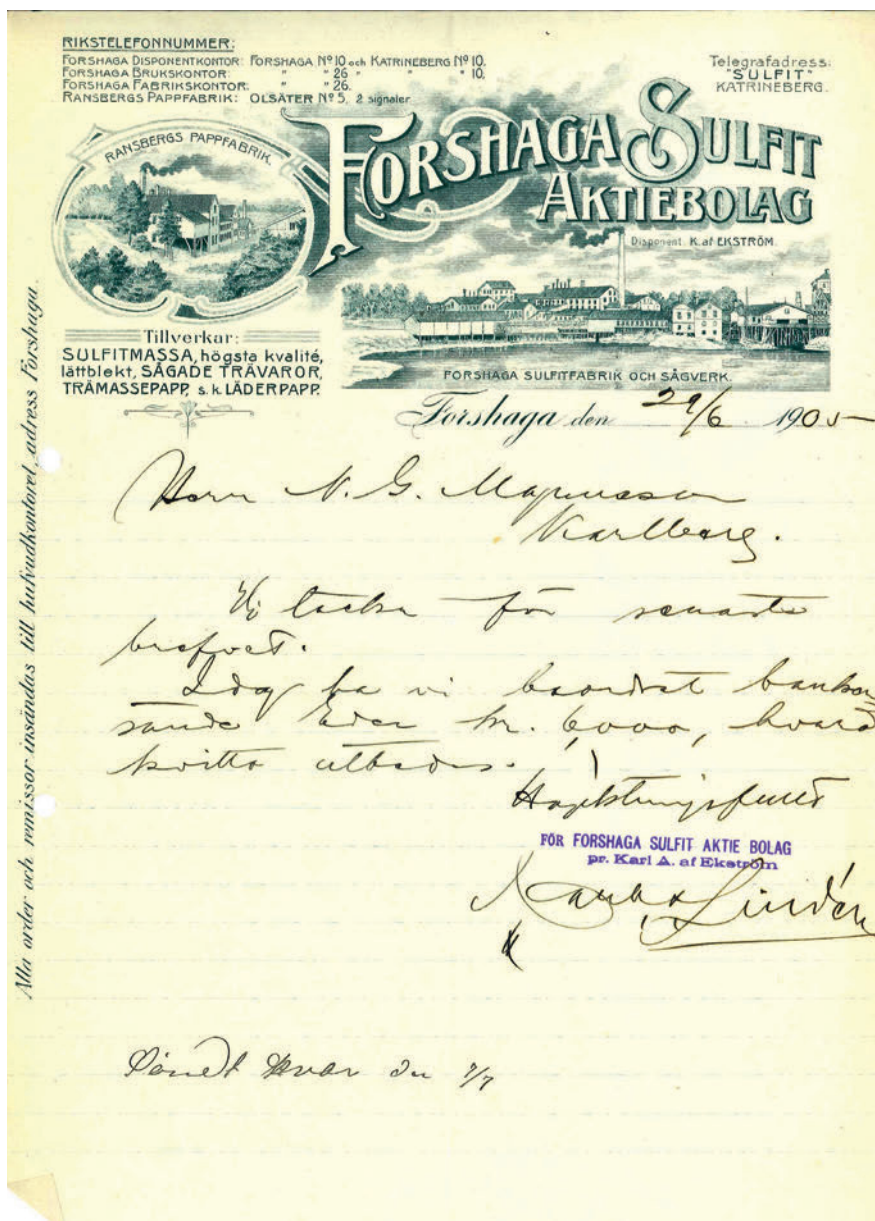 RIKSTELEFONNUMMER:
FORSHAGA DISPONENTKONTOR: FORSHAGA Nº 10 och KATRINEBERG Nº 10.
FORSHAGA BRUKSKONTOR: " " 26 " " " 10.
FORSHAGA FABRIKSKONTOR: " " 26.
RANSBERGS PAPPFABRIK: OLSÄTER Nº 5. 2 signaler
Telegrafadress:
"SULFIT"
KATRINEBERG.
RANSBERGS PAPPFABRIK.
FORSHAGA SULFIT
AKTIEBOLAG
Disponent K. af EKSTRÖM.
Tillverkar:
SULFITMASSA, högsta kvalité,
lättblekt, SÅGADE TRÄVAROR,
TRÄMASSEPAPP, s.k. LÄDERPAPP.
FORSHAGA SULFITFABRIK OCH SÅGVERK.
Forshaga den 29/6 1905
Alla order och remissor insändas till hufvudkontoret, adress Forshaga.
Herr N. G. Magnusson
Karlberg.
Vi tacka för senaste
brefvet.
Idag ha vi beordrat banken
sända Eder kr. 6,000, hvard
kvitto utbedes.
Högaktningsfullt
FÖR FORSHAGA SULFIT AKTIE BOLAG
pr. Karl A. af Ekström
Lindén
Sändt svar den 7/7